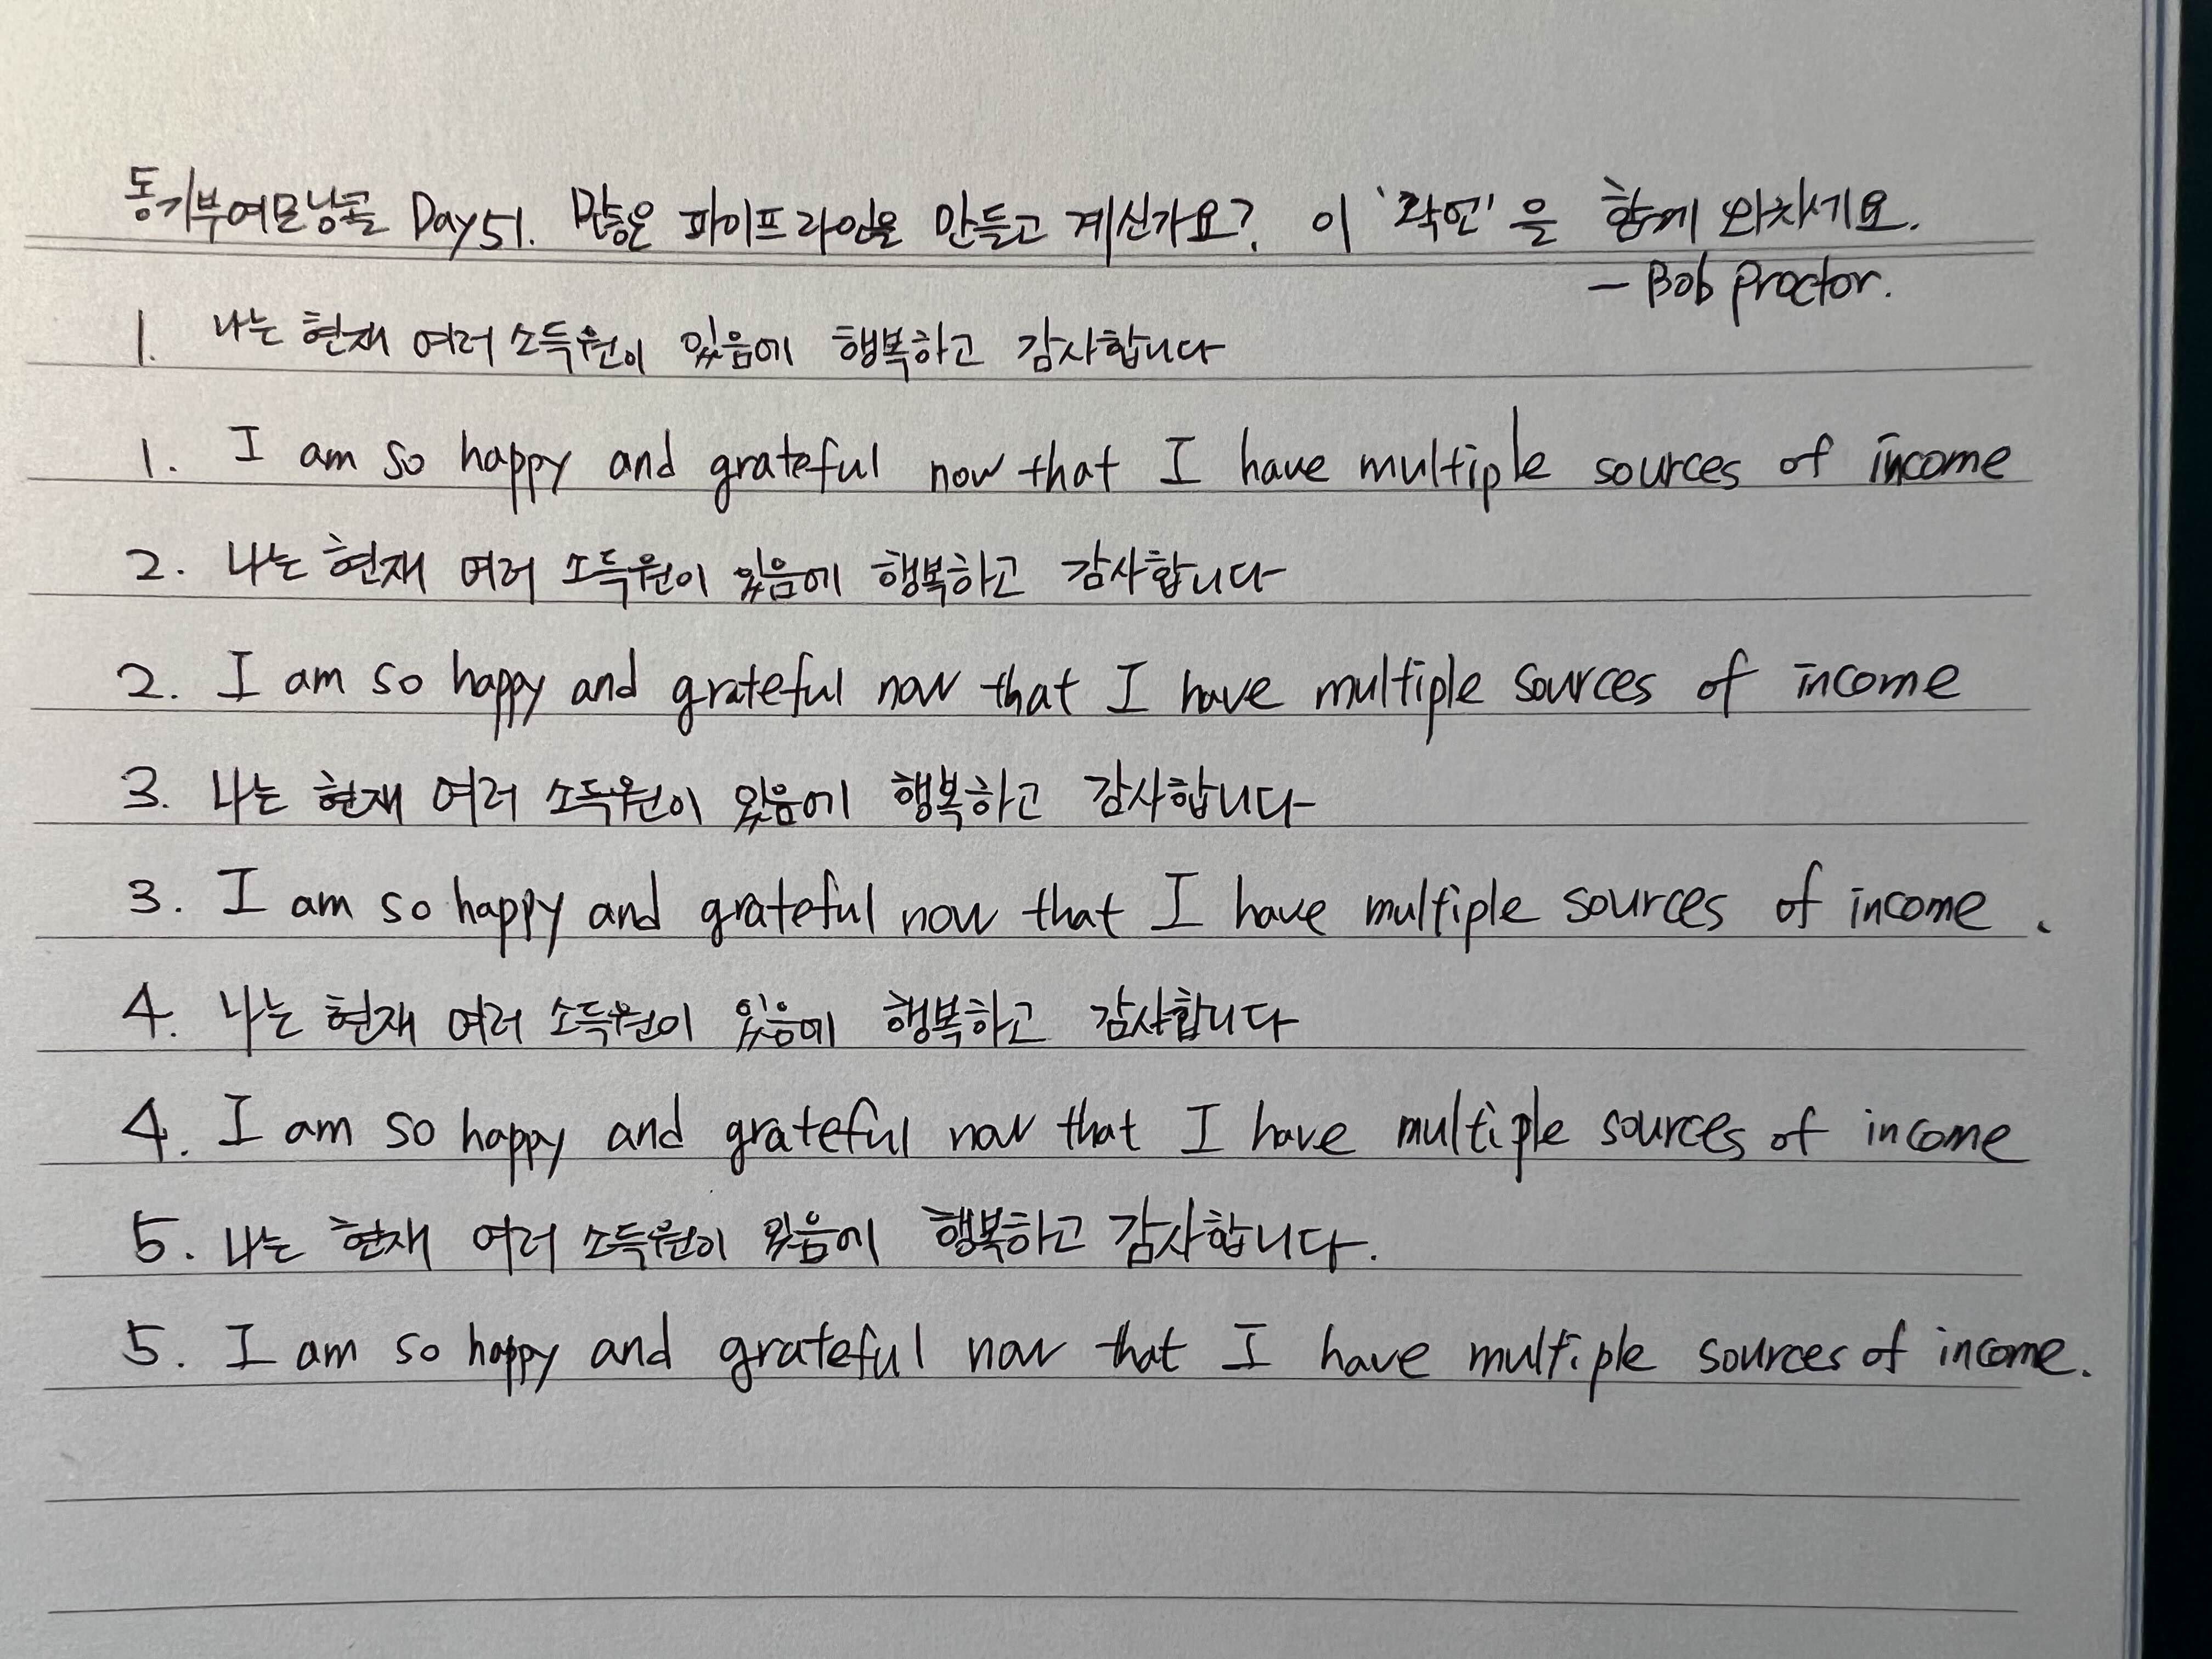 동기부여모닝콜 Day51. 많은 파이프라인을 만들고 계신가요? 이 '확언'을 함께 외치세요.
- Bob Proctor.
1. 나는 현재 여러 소득원이 있음에 행복하고 감사합니다
1. I am so happy and grateful now that I have multiple sources of income
2. 나는 현재 여러 소득원이 있음에 행복하고 감사합니다
2. I am so happy and grateful now that I have multiple sources of income
3. 나는 현재 여러 소득원이 있음에 행복하고 감사합니다
3. I am so happy and grateful now that I have multiple sources of income.
4. 나는 현재 여러 소득원이 있음에 행복하고 감사합니다
4. I am so happy and grateful now that I have multiple sources of income
5. 나는 현재 여러 소득원이 있음에 행복하고 감사합니다.
5. I am so happy and grateful now that I have multiple sources of income.